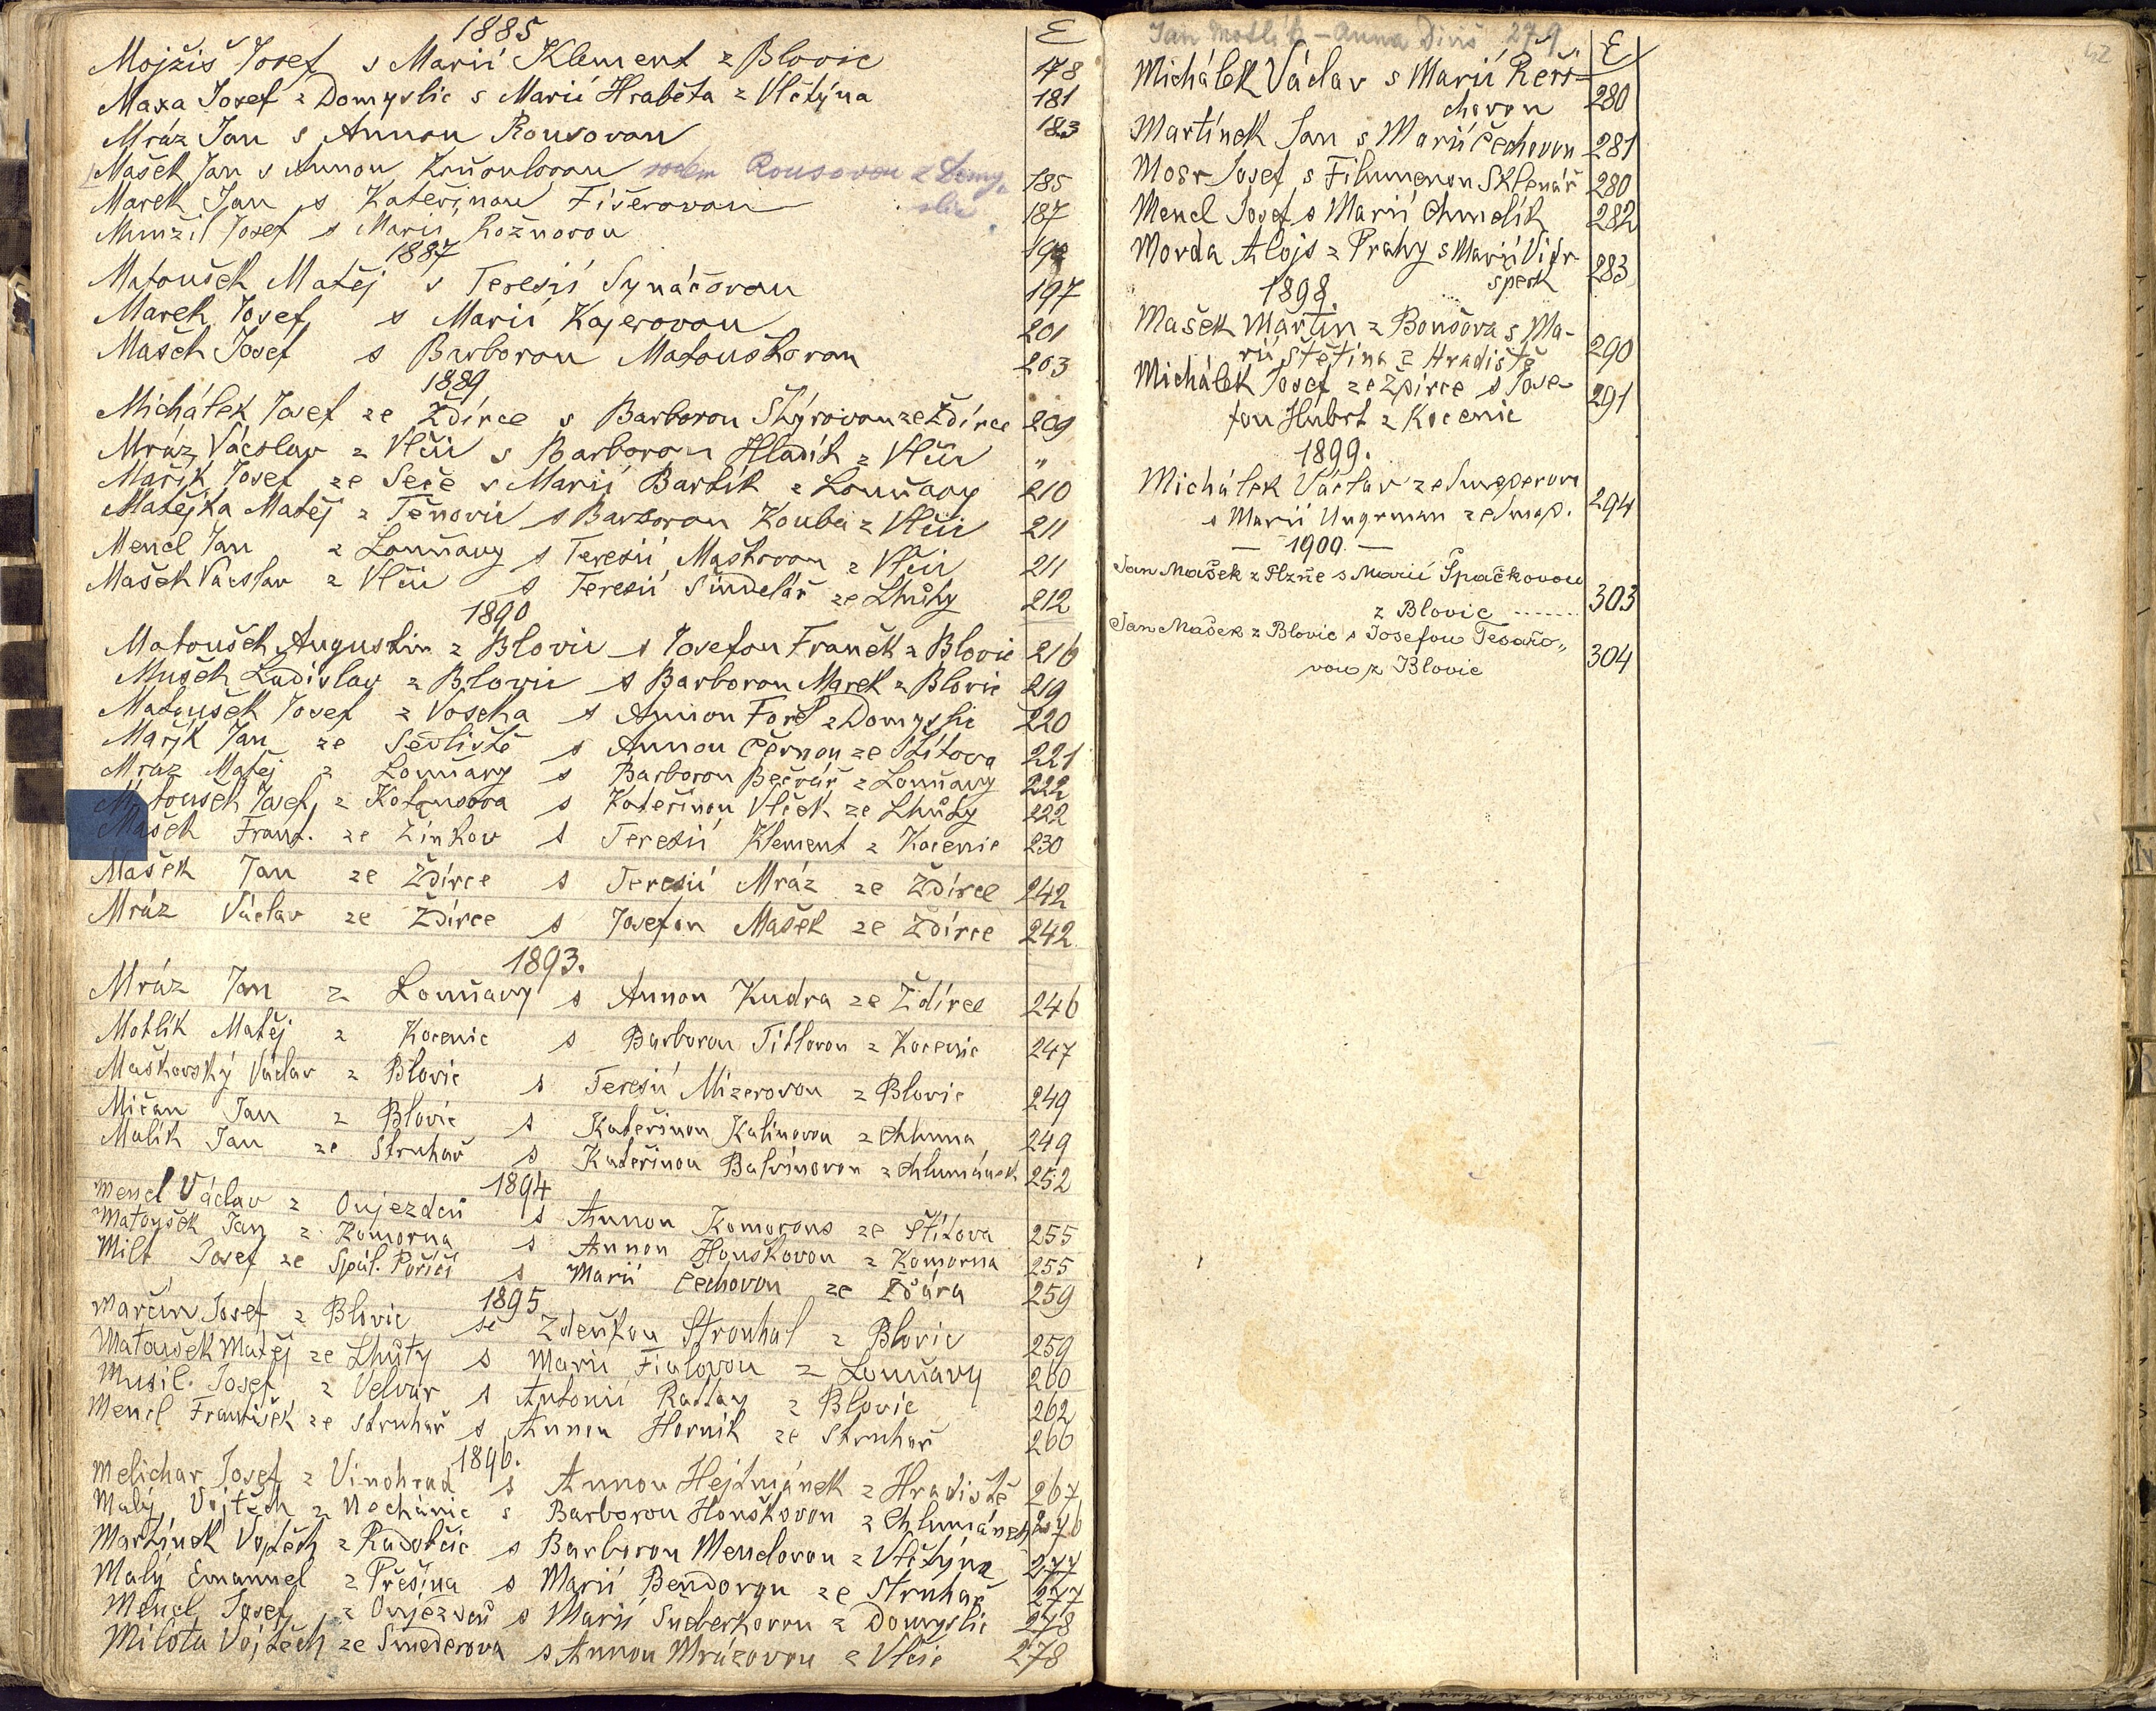 1885
E
Mojžiš Josef s Marií Klement z Blovic 178
Maxa Josef z Domyslic s Marií Hraběta z Vlčtýna 181
Mráz Jan s Annou Rousovou 183
Mašek Jan s Annou rodem Rousovou z Domyslic 185
Marek Jan s Kateřinou Fišerovou 187
Munžil Josef s Marií Rožnovou
1887
Matoušek Matěj s Teresií Synáčovou 197
Marek Josef s Marií Kajerovou 201
Mašek Josef s Barborou Matouškovou 203
1889
Michálek Josef ze Ždírce s Barborou Skýrovou ze Ždírce 209
Mráz Václav z Vlčic s Barborou Hladík z Vlčic "
Mařík Josef ze Seče s Marií Bartík z Louňavy 210
Matějka Matěj z Těňovic s Barborou Kouba z Vlčic 211
Mencl Jan z Louňavy s Teresií Maškovou z Vlčic 211
Mašek Václav z Vlčic s Teresií Šindelář ze Lhůty 212
1890
Matoušek Augustin z Blovic s Josefou Franěk z Blovic 216
Mušek Ladislav z Blovic s Barborou Marek z Blovic 219
Matoušek Josef z Voseka s Annou Foršt z Domyslic 220
Mařík Jan ze Sedliště s Annou Černou ze Štítova 221
Mráz Matěj z Louňavy s Barborou Bečvář z Louňavy 222
Matoušek Josef z Kotousova s Kateřinou Vlček ze Lhůty 222
Mašek Frant. ze Žinkov s Teresií Klement z Kocenic 230
Mašek Jan ze Ždírce s Teresií Mráz ze Ždírce 242
Mráz Václav ze Ždírce s Josefou Mašek ze Ždírce 242
1893.
Mráz Jan z Louňavy s Annou Kudra ze Ždírce 246
Motlík Matěj z Kocenic s Barborou Titlovou z Kocenic 247
Maškovský Václav z Blovic s Teresií Mizerovou z Blovic 249
Mičan Jan z Blovic s Kateřinou Kalinovou z Chlumu 249
Malík Jan ze Struhař s Kateřinou Balvínovou z Chlumánek 252
1894
Mencl Václav z Oujezdců s Annou Komorous ze Štítova 255
Matoušek Jan z Komorna s Annou Houškovou z Komorna 255
Milt Josef ze Spál. Poříčí s Marií Čechovou ze Ždára 259
1895
Marčin Josef z Blovic se Zdeňkou Strouhal z Blovic 259
Matoušek Matěj ze Lhůty s Marií Fialovou z Louňavy 260
Musil Josef z Velvar s Antonií Rattay z Blovic 262
Mencl František ze Struhař s Annou Horník ze Struhař 266
1896.
Melichar Josef z Vinohrad s Annou Hejtmánek z Hradiště 267
Malý Vojtěch z Nechanic s Barborou Houškovou z Chlumánek 276
Martínek Vojtěch z Radobčic s Barborou Menclovou z Vlčtýna 277
Malý Emanuel z Přešína s Marií Bendovou ze Struhař 277
Mencl Josef z Oujezdců s Marií Sneberkovou z Domyslic 278
Milota Vojtěch ze Smederova s Annou Mrázovou z Vlčic 278
Jan Motlík - Anna Diviš 279
E
42
Michálek Václav s Marií Řeři-
chovou 280
Martínek Jan s Marií Čechovou 281
Mosr Josef s Filumenou Sklenář 280
Mencl Josef s Marií Chmelík 282
Morda Alojs z Prahy s Marií Vidr-
šperk 283
1898.
Mašek Martin z Boušova s Ma-
rií Štětina z Hradiště 290
Michálek Josef ze Ždírce s Jose-
fou Hubrt z Kocenic 291
1899.
Michálek Václav ze Smederova
s Marií Ungrman ze Smed. 294
— 1900. —
Jan Mašek z Plzně s Marií Špačkovou
z Blovic ....... 303
Jan Mašek z Blovic s Josefou Tesařo„
vou z Blovic 304